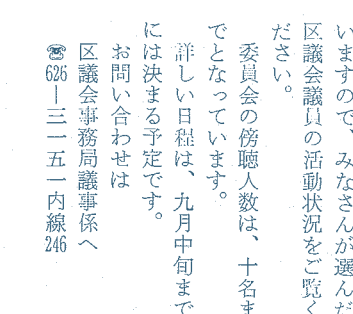 いますので、みなさんが選んだ
区議会議員の活動状況をご覧く
ださい。
委員会の傍聴人数は、十名ま
でとなっています。
詳しい日程は、九月中旬まで
には決まる予定です。
お問い合わせは
区議会事務局議事係へ
☎626―三一五一内線246